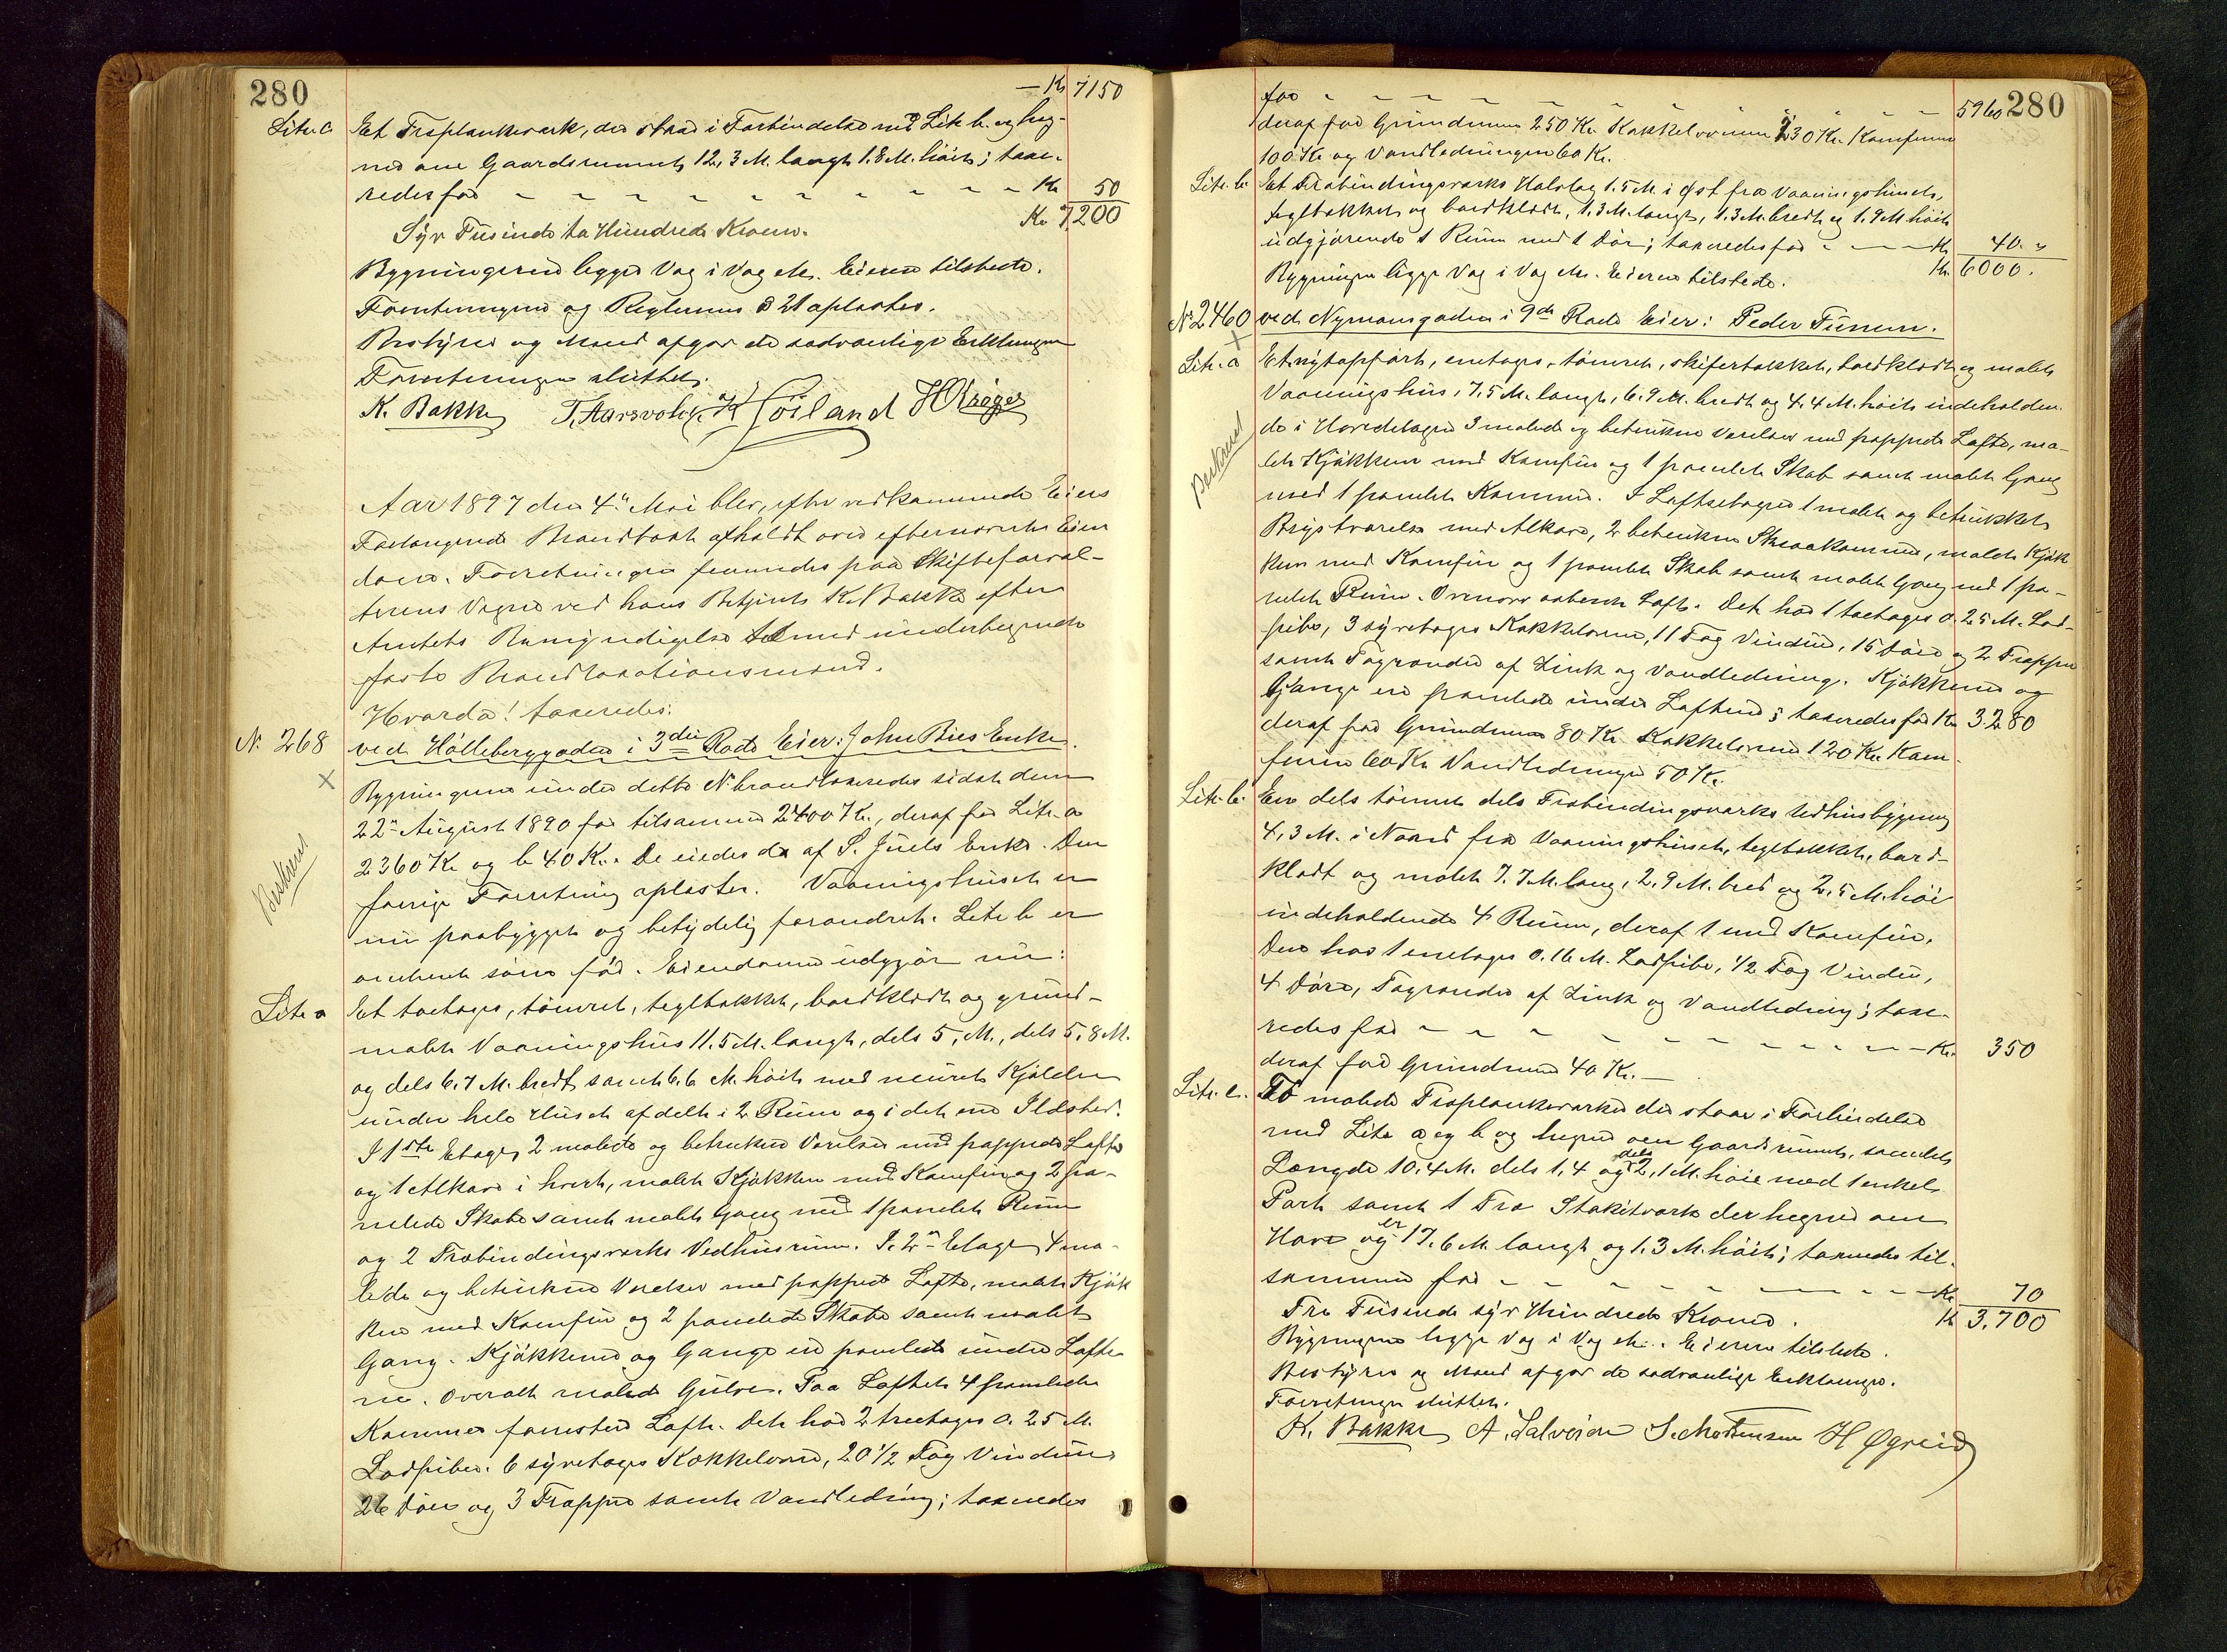 280
— Kr 7150
Litr. c Et Træplankeværk, der staar i Forbindelse med Litr b. og heg-
ner om Gaardsrummet, 12,3 M. langt 1.8 M. höit; taxe-
redes for - - - - - - - - - - Kr 50
Syv Tusinde to Hundrede Kroner. Kr 7200
Bygningerne ligger Væg i Væg etc. Eieren tilstede.
Forretningen og Reglernes § 21 oplæstes.
Bestyrer og Mænd afgav de sædvanlige Erklæringer
Forretningen sluttet.
K. Bakke T. Aarsvold K Höiland H Kröger
Aar 1897 den 4de Mai blev, efter vedkommende Eiers
Forlangende Brandtaxt afholdt over efternævnte Eien
domme. Forretningen fremmedes paa Skifteforval-
terens Vegne ved hans Betjent K. Bakke efter
Amtets Bemyndigelse med underhegnede
faste Brandtaxationsmænd.
Hvorda! taxeredes:
N. 268 ved Hölleberggaden i 3die Rode Eier: John Bies Enke.
Bygningerne under dette No brandtaxeredes sidst den
22de August 1890 for tilsammen 2400 Kr., deraf for Litr. a
2360 Kr og b 40 Kr. De eiedes da af S. Juels Enke. Den
Beskrevet
forrige Forretning oplæstes. Vaaningshuset er
nu paabygget og betydelig forandret. Litr b er
omtrent som för. Eiendommen udgjör nu:
Litr a Et toetages, tömret, tegltækket, bordklædt og grund-
malet Vaaningshus 11.5 M. langt, dels 5, M., dels 5,8 M.
og dels 6.7 M. bredt samt 6.6 M. höit med muret Kjelder
under hele Huset afdelt i 2 Rum og i det ene Ildsted.
I 1ste Etage, 2 malede og betrukne Værelser med pappede Lofte
og 1 Alkove i hvert, malet Kjökken med Komfur og 2 pa-
nelede Skabe samt malet Gang med 1 panelet Rum
og 2 Træbindingsværks Vedhusrum. I 2den Etage 4 ma-
lede og betrukne Værelser med pappede Lofte, malet Kjök
ken med Komfur og 2 panelede Skabe samt malet
Gang. Kjökkener og Gange er panelede under Lofte-
ne. Overalt malede Gulve. Paa Loftet 4 panelede
Kammer forresten Loft. Det har 2 treetages 0.25 M.
Ladpiber. 6 syvetages Kakkelovne, 20 1/2 Fag Vinduer
26 Döre og 3 Trapper samt Vandledning; taxeredes
280
for - - - - - - - - - - 5960
deraf for Grundmuren 250 Kr. Kakkelovnene 230 Kr. Komfurerne
100 Kr og Vandledningen 60 Kr.
Litr. b. Et Træbindingsværks Halvtag 1.5 M. i Öst fra Vaaningshuset,
tegltækket og bordklædt, 1,3 M. langt, 1.3 M. bredt og 1.9 M. höit
udgjörende 1 Rum med 1 Dör; taxeredes for - - - Kr 40. -
Bygningen ligger Væg i Væg etc. Eieren tilstede. Kr 6000.
No 2460 ved Nymansgaden i 9de Rode Eier: Peder Tunem.
Litr. a Et nyt opfört, enetages, tömret, skifertækket, bordklædt og malet
Vaaningshus, 7,5 M. langt, 6.9 M. bredt og 4,4 M. höit indeholden
de i Hovedetagen 3 malede og betrukne Værelser med pappede Lofte, ma-
Beskrevet
let Kjökken med Komfur og 1 panelet Skab samt malet Gang
med 1 panelet Kammer. I Loftsetagen 1 malet og betrukket
Brystværelse med Alkove, 2 betrukne Skraakammer, malet Kjök
ken med Komfur og 1 panelet Skab samt malet Gang med 1 pa-
nelet Rum. Ovenover aabent Loft. Det har 1 toetages 0.25 M. Lad-
pibe, 3 syvetages Kakkelovne, 11 Fag Vinduer, 15 Döre og 2 Trapper
samt Tagrender af Zink og Vandledning. Kjökkener og
Gange er panelede under Loftene; taxeredes for Kr 3.280
deraf for Grundmuren 80 Kr Kakkelovnene 120 Kr Kom-
furerne 60 Kr Vandledningen 50 Kr.
Litr. b. En dels tömret dels Træbindingsværks Udhusbygning
4,3 M. i Nord fra Vaaningshuset, tegltækket, bord-
klædt og malet 7.7 M. lang, 2.9 M. bred og 2.5 M. höi
indeholdende 4 Rum, deraf 1 med Komfur.
Den har 1 enetages 0.16 M. Ladpibe, 1/2 Fag Vindu,
4 Döre, Tagrender af Zink og Vandledning; taxe-
redes for - - - - - - - - - Kr. 350
deraf for Grundmuren 40 Kr. —
Litr. c. To malede Træplankeværker der staar i Forbindelse
med Litr a og b og hegner om Gaardsrummet, samlet
Længde 10,4 M. dels 1,4 og dels 2,1 M. höie med 1 enkel
Port samt 1 Træ Stakitværk der hegner om
Have og er 17.6 M. langt og 1.3 M. höit; taxeredes til-
sammen for - - - - - - - - Kr 70
Tre Tusinde syv Hundrede Kroner. Kr 3.700
Bygningerne ligger Væg i Væg etc. Eieren tilstede.
Bestyrer og Mænd afgav de sædvanlige Erklæringer.
Forretningen sluttet.
K. Bakke A. Salvesen S. Mortensen H Øgreid